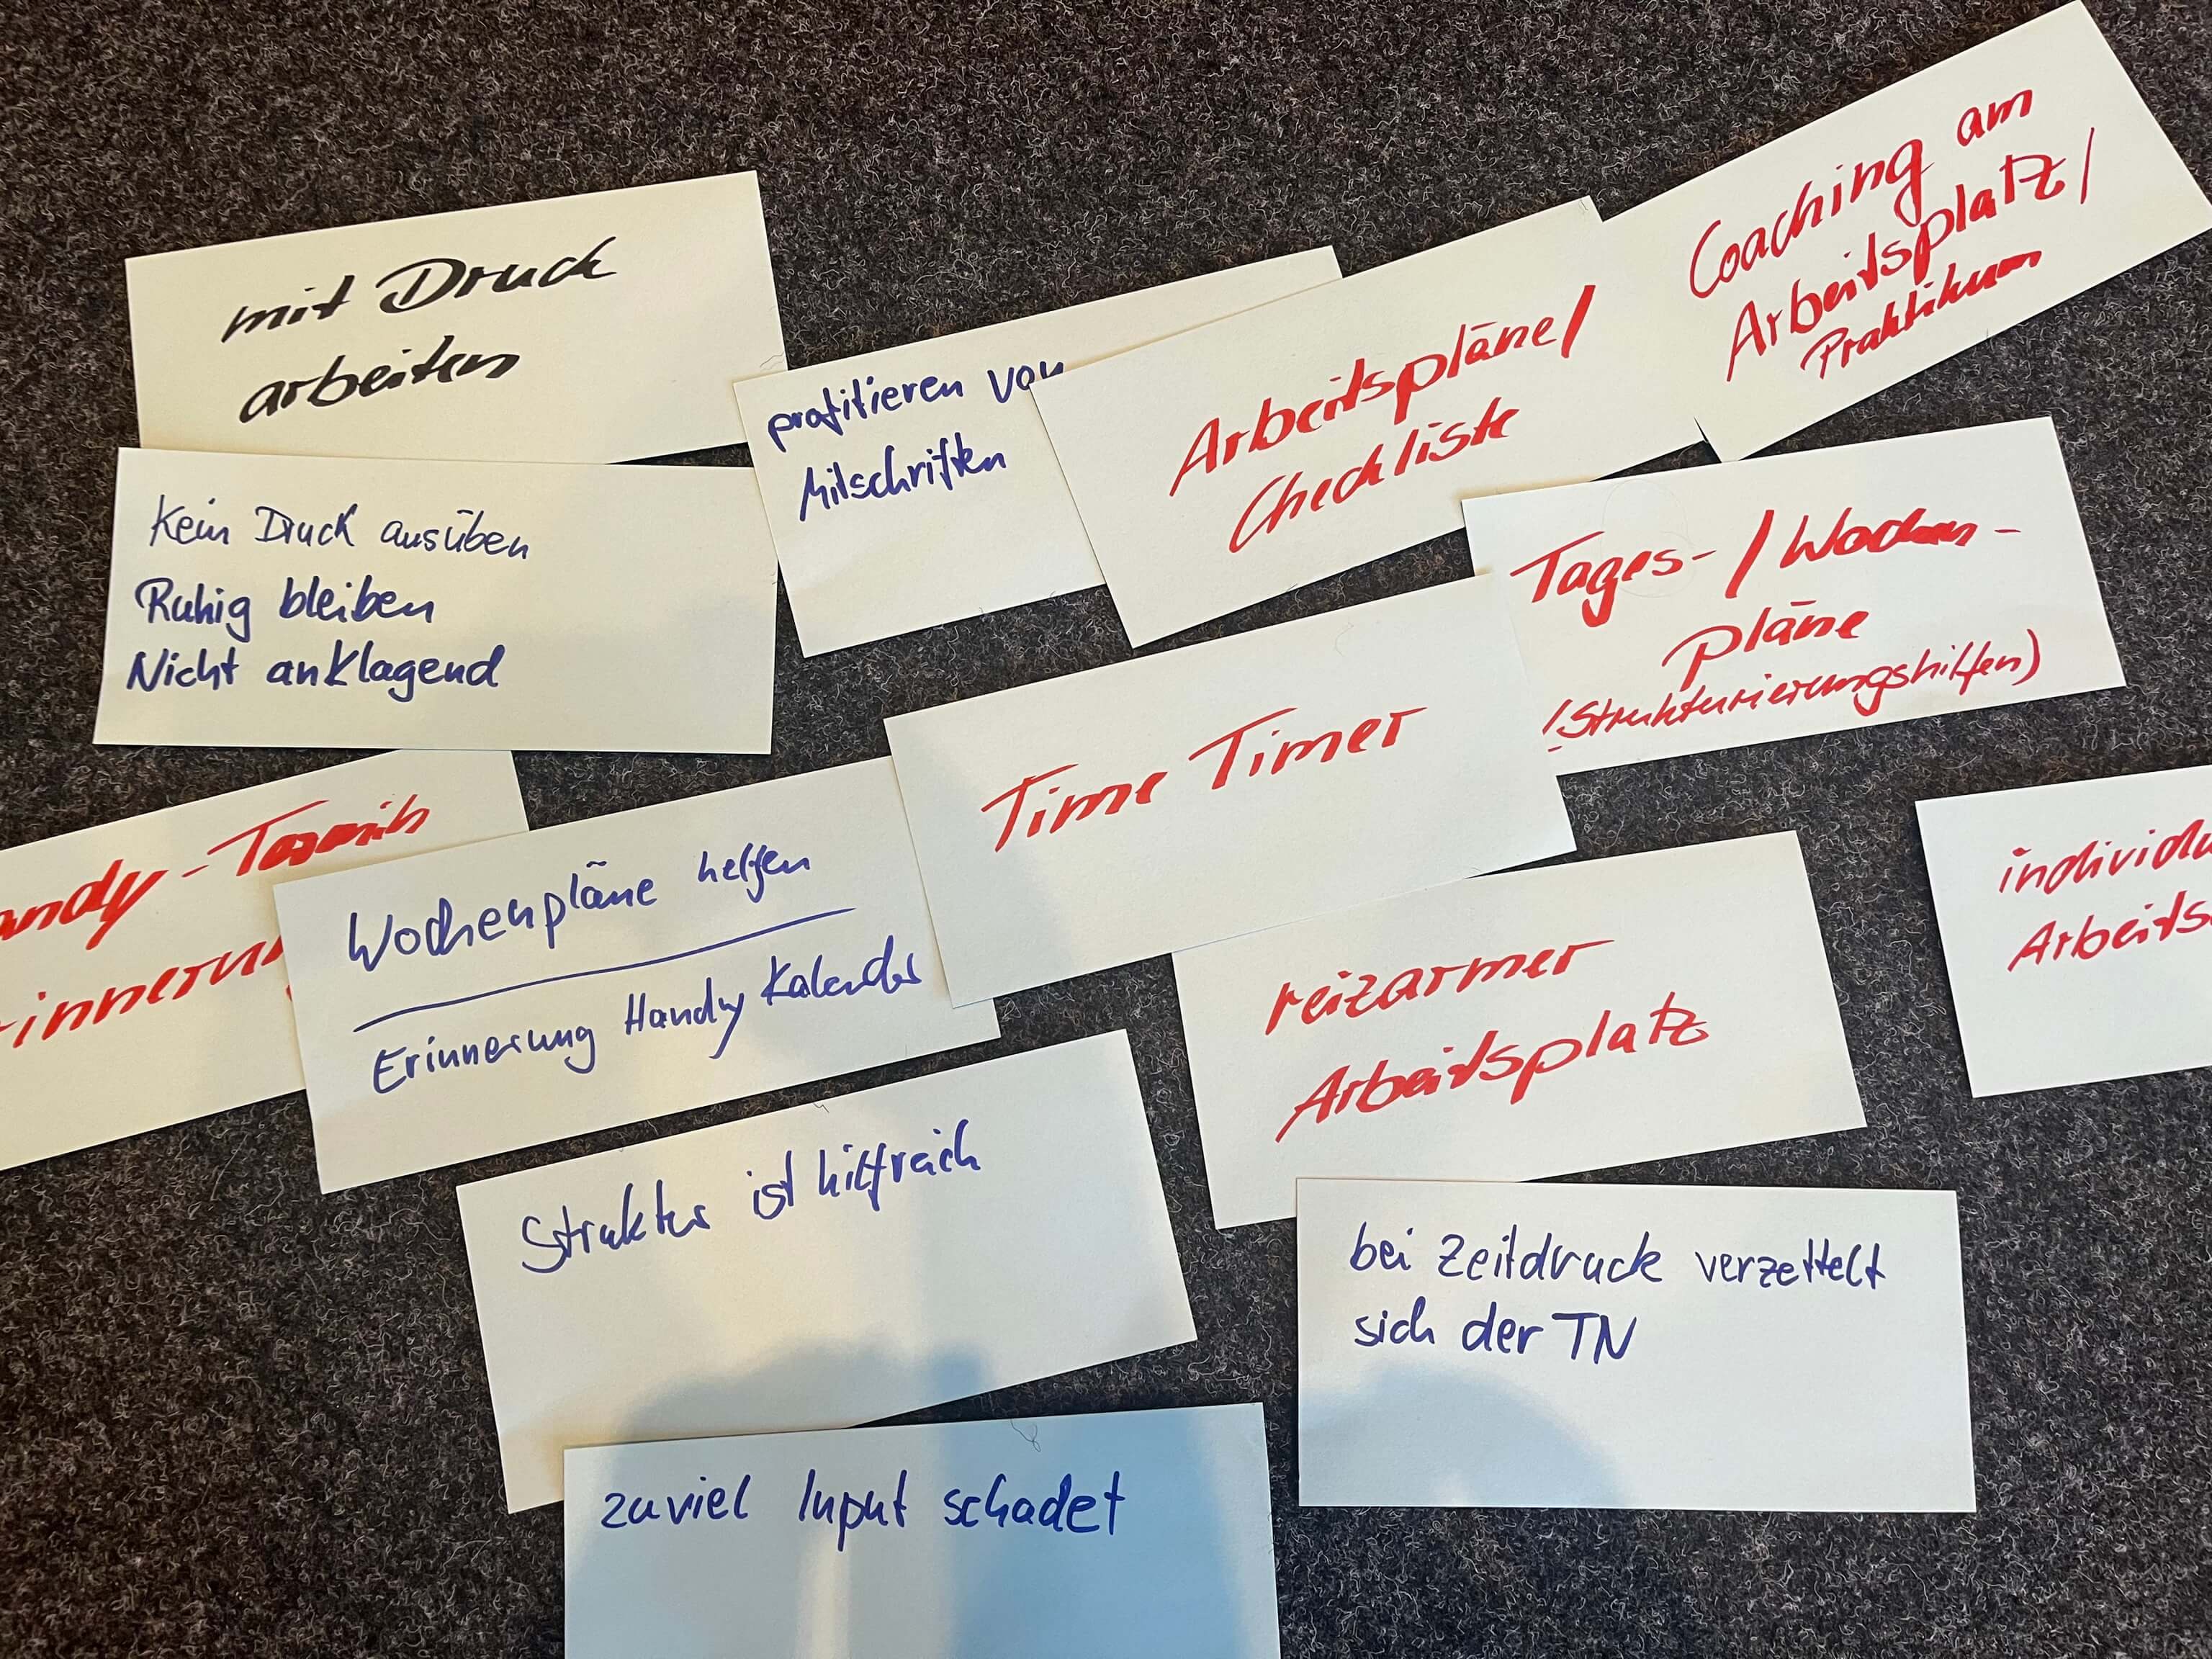 mit Druck
arbeiten
Kein Druck ausüben
Ruhig bleiben
Nicht anklagend
profitieren von
Mitschriften
Arbeitspläne/
Checkliste
Coaching am
Arbeitsplatz/
Praktikum
Tages-/Wochen-
pläne
(Strukturierungshilfen)
Time Timer
andy-Termin
rinnerun
Wochenpläne helfen
Erinnerung Handy Kalender
reizarmer
Arbeitsplatz
individu
Arbeits
Struktur ist hilfreich
bei Zeitdruck verzettelt
sich der TN
zuviel Input schadet